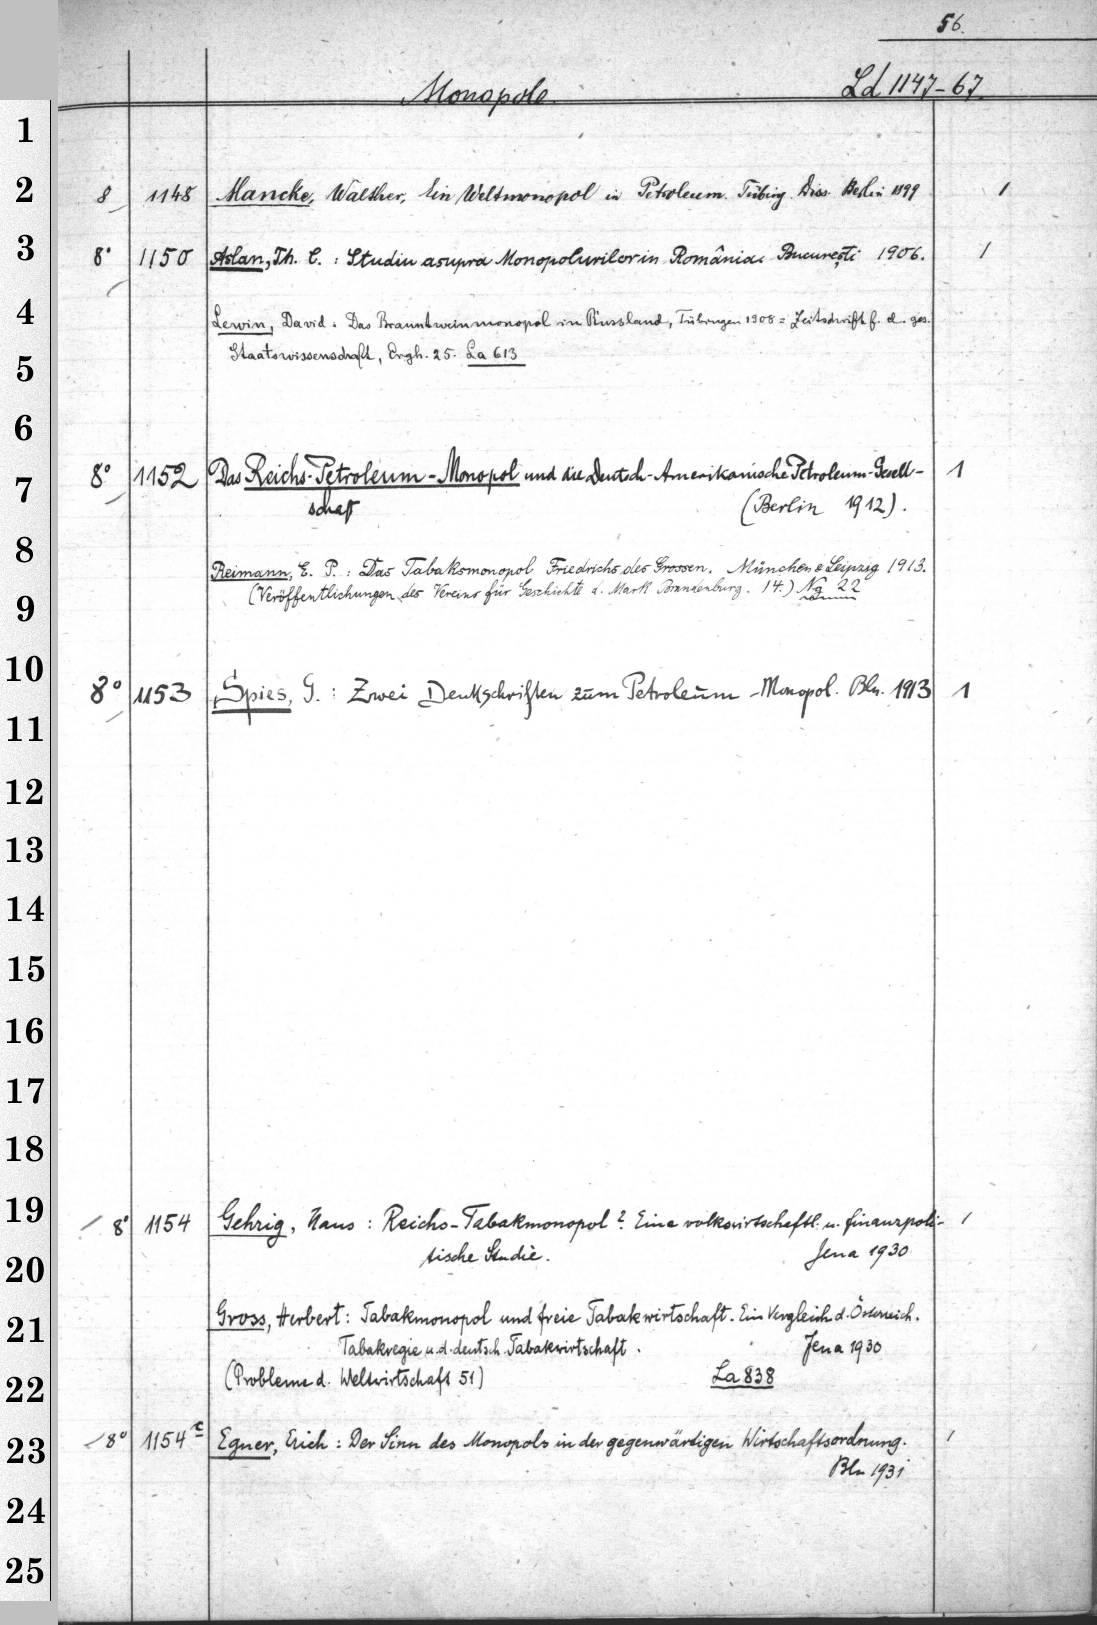 56.
Monopole.
Ld 1147-67.
1
2
8 1148 Mancke, Walther, Ein Weltmonopol in Petroleum. Tübing. Diss. Berlin 1899 1
3
8° 1150 Aslan, Th. C. : Studiu asupra Monopolurilor in România. București 1906. 1
4
Lewin, David : Das Branntweinmonopol in Russland, Tübingen 1908 = Zeitschrift f. d. ges.
Staatswissenschaft, Ergh. 25. La 613
5
6
7
8° 1152 Das Reichs-Petroleum-Monopol und die Deutsch-Amerikanische Petroleum-Gesell- 1
schaft (Berlin 1912).
8
Reimann, E. P. : Das Tabaksmonopol Friedrichs des Grossen. München & Leipzig 1913.
(Veröffentlichungen des Vereins für Geschichte d. Mark Brandenburg. 14.) Ng 22
9
10
8° 1153 Spies, G. : Zwei Denkschriften zum Petroleum-Monopol. Bln. 1913 1
11
12
13
14
15
16
17
18
19
8° 1154 Gehrig, Hans : Reichs-Tabakmonopol? Eine volkswirtschaftl. u. finanzpoli- 1
tische Studie. Jena 1930
20
21
Gross, Herbert : Tabakmonopol und freie Tabakwirtschaft. Ein Vergleich d. Österreich.
Tabakregie u. d. deutsch. Tabakwirtschaft. Jena 1930
22
(Probleme d. Weltwirtschaft 51) La 838
23
8° 1154c Egner, Erich : Der Sinn des Monopols in der gegenwärtigen Wirtschaftsordnung. 1
Bln 1931
24
25